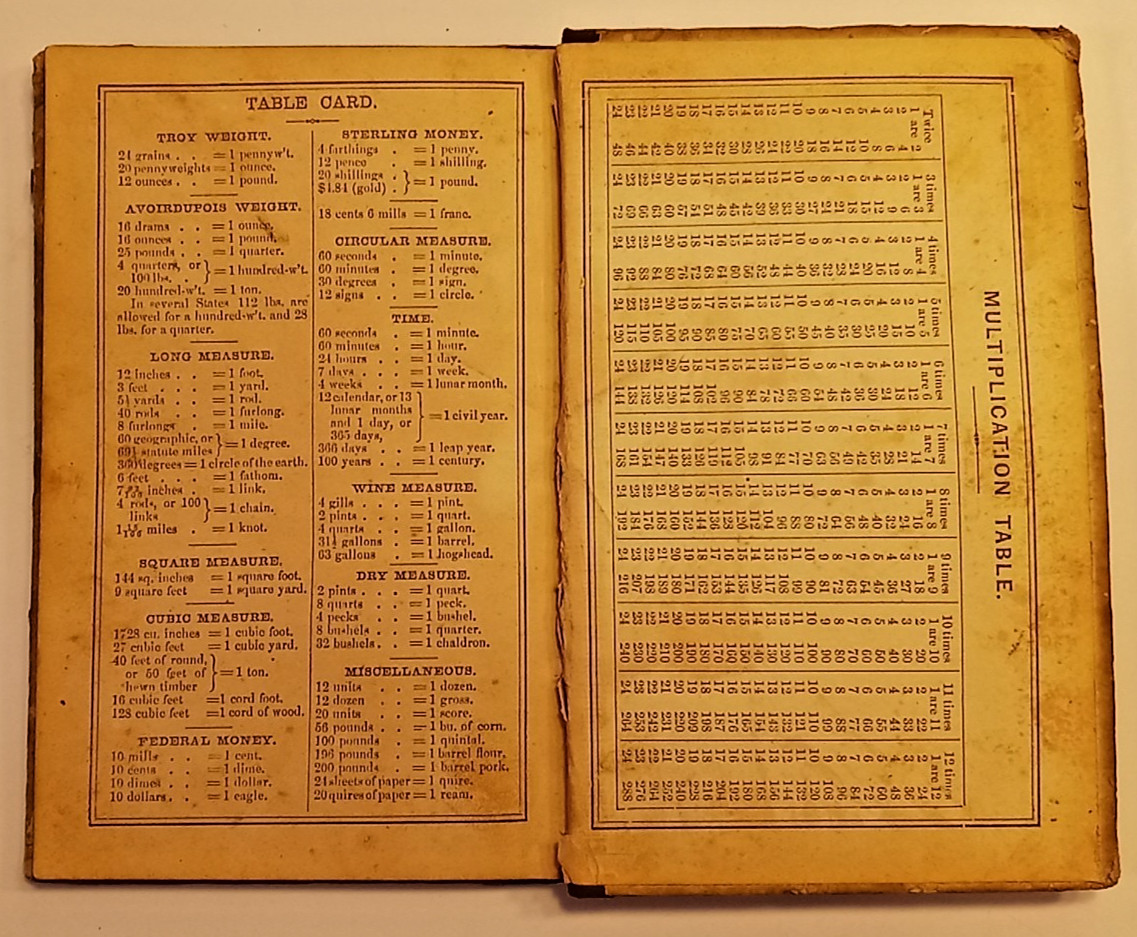 TABLE CARD.
TROY WEIGHT.
24 grains . . = 1 pennyw't.
20 pennyweights = 1 ounce.
12 ounces . . = 1 pound.
AVOIRDUPOIS WEIGHT.
16 drams . . = 1 ounce.
16 ounces . . = 1 pound.
25 pounds . . = 1 quarter.
4 quarters, or
100 lbs. . } = 1 hundred-w't.
20 hundred-w't. = 1 ton.
In several States 112 lbs. are
allowed for a hundred-w't. and 28
lbs. for a quarter.
LONG MEASURE.
12 inches . . = 1 foot.
3 feet . . . = 1 yard.
5½ yards . . = 1 rod.
40 rods . . = 1 furlong.
8 furlongs . = 1 mile.
60 geographic, or
69½ statute miles } = 1 degree.
360 degrees = 1 circle of the earth.
6 feet . . . = 1 fathom.
7 92/100 inches . = 1 link.
4 rods, or 100
links } = 1 chain.
miles . = 1 knot.
SQUARE MEASURE.
144 sq. inches = 1 square foot.
9 square feet = 1 square yard.
CUBIC MEASURE.
1728 cu. inches = 1 cubic foot.
27 cubic feet = 1 cubic yard.
40 feet of round,
or 50 feet of
hewn timber } = 1 ton.
16 cubic feet = 1 cord foot.
128 cubic feet = 1 cord of wood.
FEDERAL MONEY.
10 mills . . = 1 cent.
10 cents . . = 1 dime.
10 dimes . . = 1 dollar.
10 dollars . . = 1 eagle.
STERLING MONEY.
4 farthings . = 1 penny.
12 pence . = 1 shilling.
20 shillings .
$4.84 (gold) . } = 1 pound.
18 cents 6 mills = 1 franc.
CIRCULAR MEASURE.
60 seconds . = 1 minute.
60 minutes . = 1 degree.
30 degrees . = 1 sign.
12 signs . . = 1 circle.
TIME.
60 seconds . = 1 minute.
60 minutes . = 1 hour.
24 hours . . = 1 day.
7 days . . . = 1 week.
4 weeks . . = 1 lunar month.
12 calendar, or 13
lunar months
and 1 day, or
365 days, } = 1 civil year.
366 days . . = 1 leap year.
100 years . . = 1 century.
WINE MEASURE.
4 gills . . . = 1 pint.
2 pints . . . = 1 quart.
4 quarts . . = 1 gallon.
31½ gallons . = 1 barrel.
63 gallons . = 1 hogshead.
DRY MEASURE.
2 pints . . . = 1 quart.
8 quarts . . = 1 peck.
4 pecks . . = 1 bushel.
8 bushels . . = 1 quarter.
32 bushels . . = 1 chaldron.
MISCELLANEOUS.
12 units . . = 1 dozen.
12 dozen . . = 1 gross.
20 units . . = 1 score.
56 pounds . . = 1 bu. of corn.
100 pounds . = 1 quintal.
196 pounds . = 1 barrel flour.
200 pounds . = 1 barrel pork.
24 sheets of paper = 1 quire.
20 quires of paper = 1 ream.
MULTIPLICATION TABLE.
Twice 3 times 4 times 5 times 6 times 7 times 8 times 9 times 10 times 11 times 12 times
1 are 2 1 are 3 1 are 4 1 are 5 1 are 6 1 are 7 1 are 8 1 are 9 1 are 10 1 are 11 1 are 12
2 4 2 6 2 8 2 10 2 12 2 14 2 16 2 18 2 20 2 22 2 24
3 6 3 9 3 12 3 15 3 18 3 21 3 24 3 27 3 30 3 33 3 36
4 8 4 12 4 16 4 20 4 24 4 28 4 32 4 36 4 40 4 44 4 48
5 10 5 15 5 20 5 25 5 30 5 35 5 40 5 45 5 50 5 55 5 60
6 12 6 18 6 24 6 30 6 36 6 42 6 48 6 54 6 60 6 66 6 72
7 14 7 21 7 28 7 35 7 42 7 49 7 56 7 63 7 70 7 77 7 84
8 16 8 24 8 32 8 40 8 48 8 56 8 64 8 72 8 80 8 88 8 96
9 18 9 27 9 36 9 45 9 54 9 63 9 72 9 81 9 90 9 99 9 108
10 20 10 30 10 40 10 50 10 60 10 70 10 80 10 90 10 100 10 110 10 120
11 22 11 33 11 44 11 55 11 66 11 77 11 88 11 99 11 110 11 121 11 132
12 24 12 36 12 48 12 60 12 72 12 84 12 96 12 108 12 120 12 132 12 144
13 26 13 39 13 52 13 65 13 78 13 91 13 104 13 117 13 130 13 143 13 156
14 28 14 42 14 56 14 70 14 84 14 98 14 112 14 126 14 140 14 154 14 168
15 30 15 45 15 60 15 75 15 90 15 105 15 120 15 135 15 150 15 165 15 180
16 32 16 48 16 64 16 80 16 96 16 112 16 128 16 144 16 160 16 176 16 192
17 34 17 51 17 68 17 85 17 102 17 119 17 136 17 153 17 170 17 187 17 204
18 36 18 54 18 72 18 90 18 108 18 126 18 144 18 162 18 180 18 198 18 216
19 38 19 57 19 76 19 95 19 114 19 133 19 152 19 171 19 190 19 209 19 228
20 40 20 60 20 80 20 100 20 120 20 140 20 160 20 180 20 200 20 220 20 240
21 42 21 63 21 84 21 105 21 126 21 147 21 168 21 189 21 210 21 231 21 252
22 44 22 66 22 88 22 110 22 132 22 154 22 176 22 198 22 220 22 242 22 264
23 46 23 69 23 92 23 115 23 138 23 161 23 184 23 207 23 230 23 253 23 276
24 48 24 72 24 96 24 120 24 144 24 168 24 192 24 216 24 240 24 264 24 288